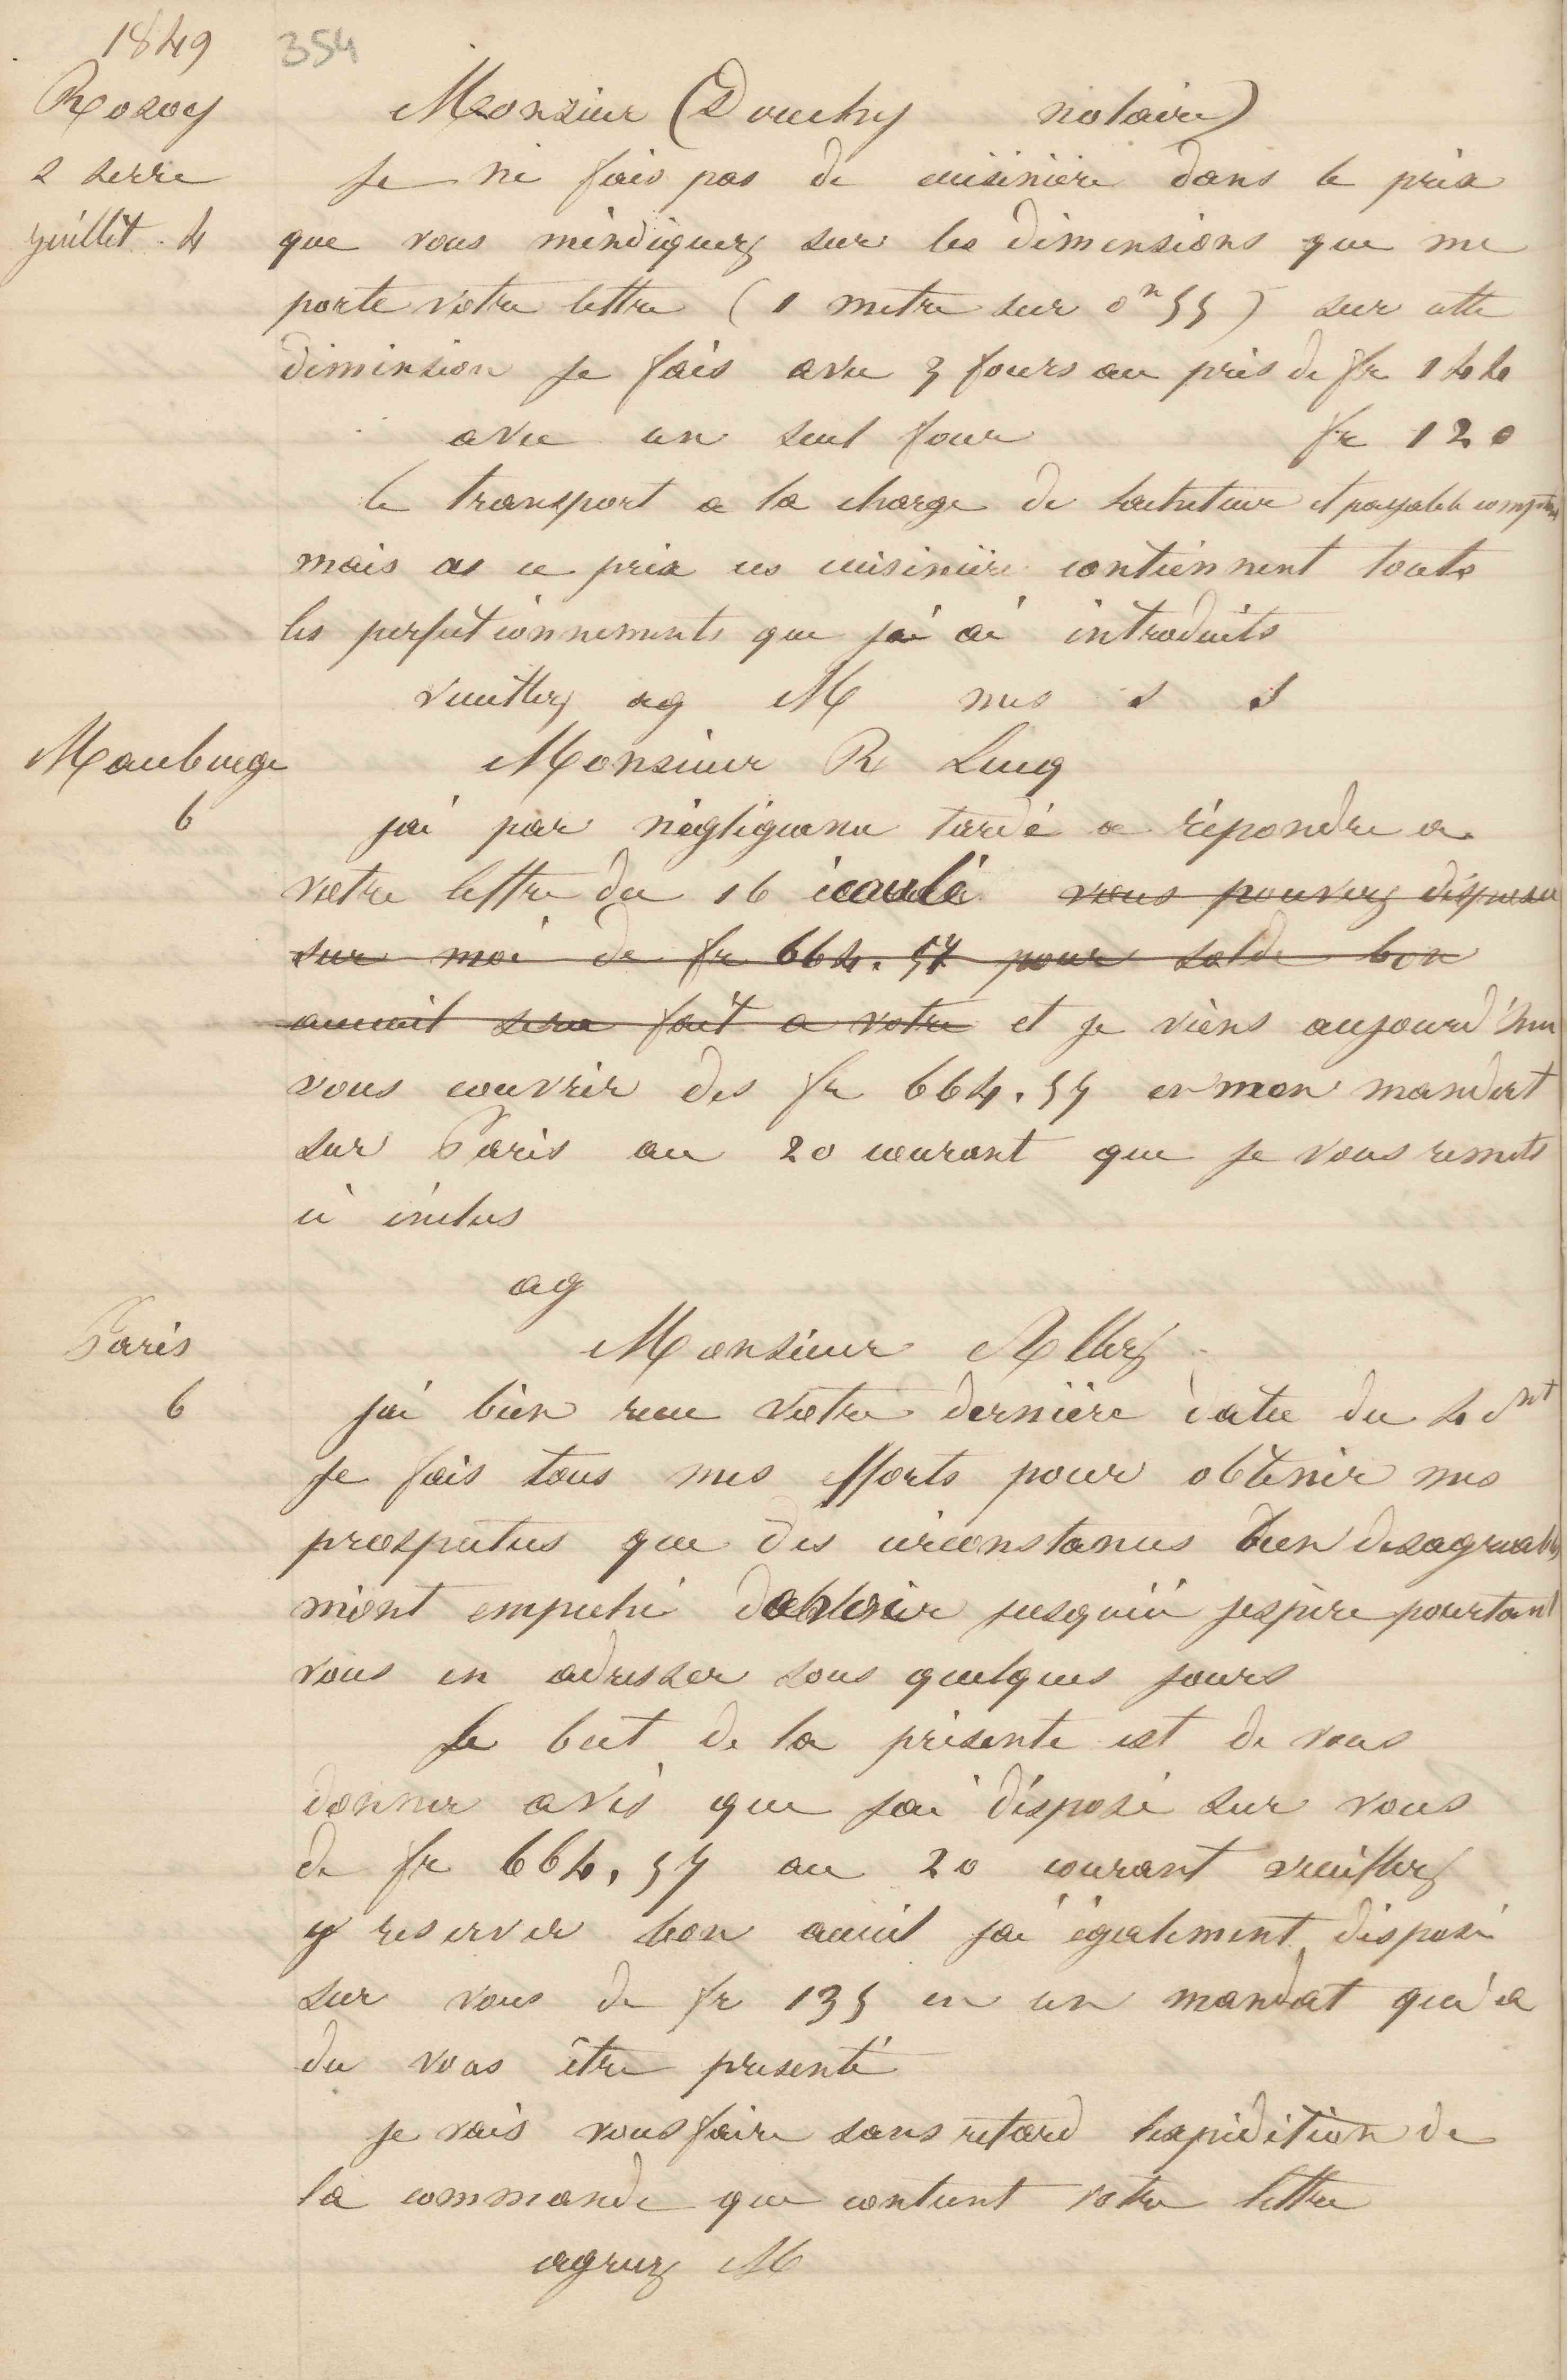 1849
354
Rozoy
s serre
juillet . 4
Monsieur (Douchy notaire)
Je ne fais pas de cuisinière dans le prix
que vous m'indiquez sur les dimensions que me
porte votre lettre ( 1 metre sur 0m 55 ) sur cette
dimension je fais avec 3 fours au pris de fr 144
avec un seul four fr 120
le transport a la charge de lacheteur et payable comptant
mais as ce prix ces cuisinière contiennent touts
les perfectionnements que jai ai introduits
veuillez ag M mes s s
Maubeuge
6
Monsieur R Lucq
jai par négligeance tardé a répondre a
votre lettre du 16 écoulé vous pouvez disposer
sur moi de fr 664.57 pour solde bon
accueil sera fait a votre et je viens aujourd'hui
vous couvrir des fr 664.57 en mon mandat
sur Paris au 20 courant que je vous remets
ci inclus
ag
Paris
6
Monsieur Allez
jai bien recu votre dernière datée du 4 ct
je fais tous mes efforts pour obtenir mes
prospectus que des circonstances bien desagreables
m'ont empeché dobtenir jusquici jespère pourtant
vous en adresser sous quelques jours
Le but de la présente est de vous
donner avis que jai disposé sur vous
de fr 664,57 au 20 courant veuillez
y reserver bon acueil jai également disposé
sur vous de fr 135 en un mandat qui a
du vous être presenté
je vais vous faire sans retard lexpédition de
la commande que contient votre lettre
agreez M